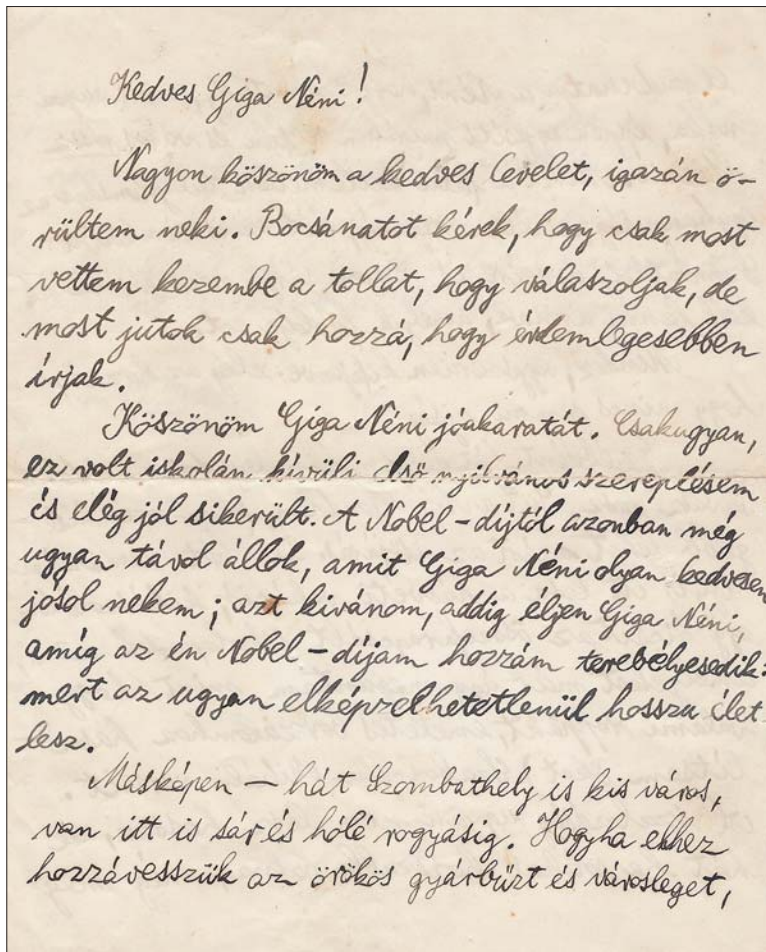 Kedves Giga Néni!
Nagyon köszönöm a kedves levelet, igazán ö-
rültem neki. Bocsánatot kérek, hogy csak most
vettem kezembe a tollat, hogy válaszoljak, de
most jutok csak hozzá, hogy érdemlegesebben
írjak.
Köszönöm Giga Néni jóakaratát. Csakugyan,
ez volt iskolán kívüli első nyilvános szereplésem
és elég jól sikerült. A Nobel-díjtól azonban még
ugyan távol állok, amit Giga Néni olyan kedvesen
jósol nekem; azt kivánom, addig éljen Giga Néni,
amíg az én Nobel-díjam hozzám terebélyesedik:
mert az ugyan elképzelhetetlenül hosszu élet
lesz.
Másképen — hát Szombathely is kis város,
van itt is sár és hólé rogyásig. Hogyha ehhez
hozzávesszük az örökös gyárbűzt és városleget,